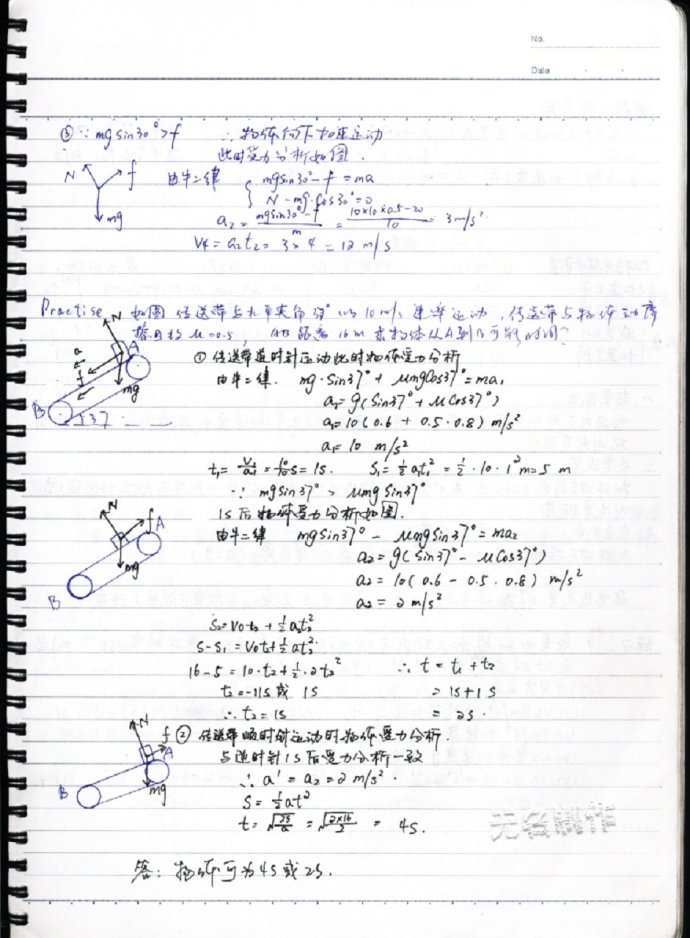 No.
Date
③∵mgsin30°>f ∴物体向下加速运动
此时受力分析如图.
N f
mg
由牛二律 { mgsin30°-f=ma
N-mg·cos30°=0
a₂=(mgsin30°-f)/m=(10×10×0.5-20)/10=3m/s²
V4=a₂t₂=3×4=12m/s
Practise 如图 传送带与水平夹角37° 以10m/s 速率运动，传送带与物体动摩
擦因数μ=0.5， AB距离16m 求物体从A到B可能时间?
①传送带逆时针运动此时物体受力分析
N a A f mg B 37°
由牛二律. mg·Sin37°+μmgCos37°=ma₁
a₁=g(Sin37°+μCos37°)
a₁=10(0.6+0.5·0.8) m/s²
a₁=10 m/s²
t₁=V/a₁=10/10s=1s. S₁=½at₁²=½·10·1²m=5m
∵mgSin37°>μmgSin37°
1S后物体受力分析如图.
N f A mg B
由牛二律 mgSin37°-μmgSin37°=ma₂
a₂=g(Sin37°-μCos37°)
a₂=10(0.6-0.5·0.8) m/s²
a₂=2m/s²
S₂=V₀t₂+½a₂t₂²
S-S₁=V₀t+½at₂²
16-5=10·t₂+½·2t₂² ∴t=t₁+t₂
t₂=-11s或 1s =1s+1s
∴t₂=1s =2s.
②传送带顺时针运动时物体受力分析
N f A mg B
与逆时针1S后受力分析一致
∴a'=a₂=2m/s²
S=½at²
t=√(2S/a)=√(2×16/2)=4s.
无名制作
答：物体可为4s或2s.